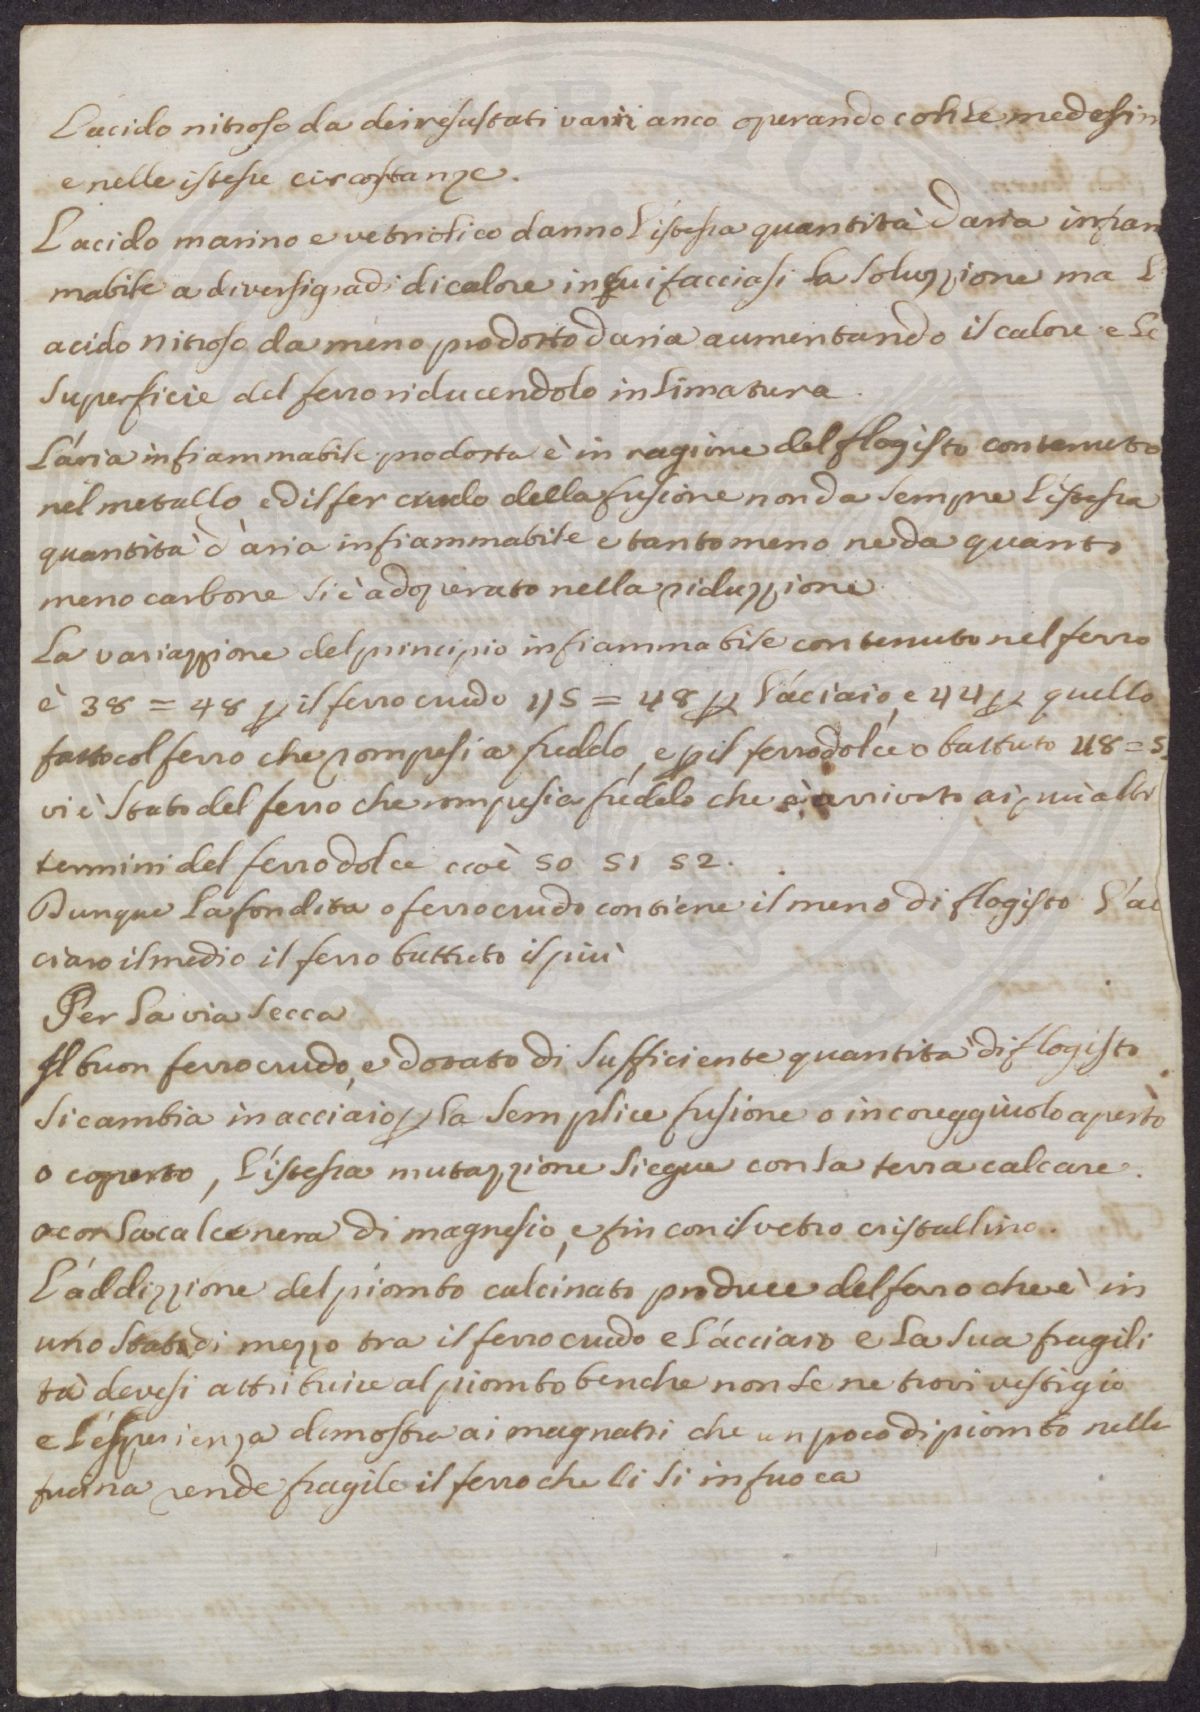 L'acido nitroso da dei resultati varii anco operando coll Le medesim
e nelle istesse circostanze.
L'acido marino e vetriolico danno l'istessa quantità d'aria infiam
mabile a diversi gradi di calore in cui facciasi la soluzzione ma L'
acido nitroso da meno prodotto d'aria aumentando il calore e La
superficie del ferro riducendolo in limatura
L'aria infiammabile prodotta è in ragione del flogisto contenuto
nel metallo ed il fer crudo della fusione non da sempre l'istessa
quantità d'aria infiammabile e tanto meno ne da quanto
meno carbone si è adoperato nella riduzzione
La variazzione del principio infiammabile contenuto nel ferro
è 38 = 48 p il ferro crudo 45 = 48 p l'acciaio, e 44 p quello
fatto col ferro che rompesi a freddo, e p il ferro dolce o battuto 48 = 5
vi è stato del ferro che rompesi a freddo che è arrivato ai più alti
termini del ferro dolce cioè 50 51 52.
Dunque La fondita o ferro crudo contiene il meno di flogisto l'ac
ciaro il medio il ferro battuto il più
Per La via Secca
Il buon ferro crudo, e dotato di sufficiente quantità di flogisto
si cambia in acciaio p la semplice fusione o in coreggiuolo aperto
o coperto, l'istessa mutazzione siegue con la terra calcare.
o con la calce nera di magnesio, e fin con il vetro cristallino.
L'addizzione del piombo calcinato produce del ferro che è in
uno stato di mezzo tra il ferro crudo e l'acciaio e La sua fragili
tà devesi attribuire al piombo benche non se ne trovi vestigio
e l'esperienza dimostra ai magnatri che un poco di piombo nella
fucina rende fragile il ferro che li si infuoca